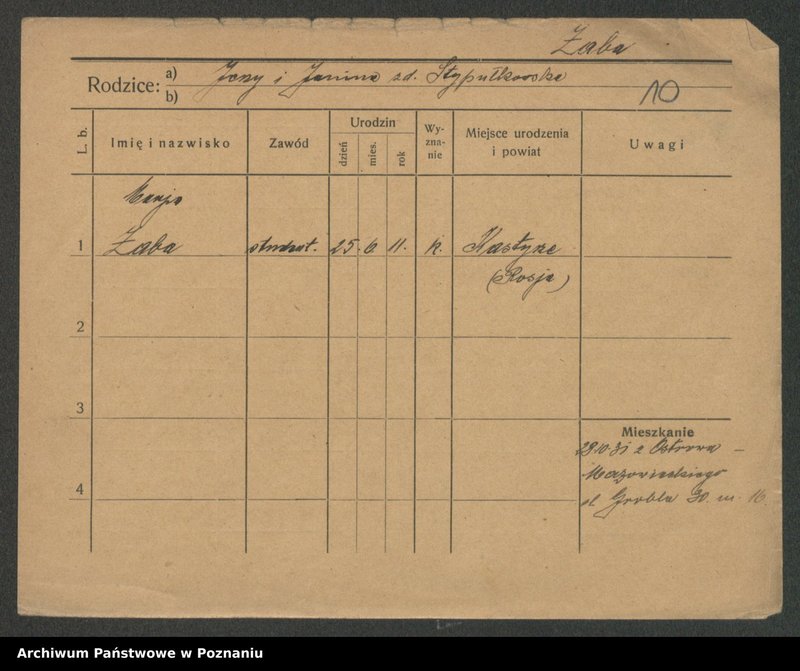 Żaba
Rodzice: a) b) Jerzy i Janina zd. Stypułkowska
10
L. b. Imię i nazwisko Zawód Urodzin dzień mies. rok Wy-zna-nie Miejsce urodzenia i powiat Uwagi
Marja
1 Żaba student. 25. 6. 11. k.
(Rosja)
2
3
Mieszkanie
28.10.31 z Ostrowa
Mazowieckiego
4
ul Grobla 30. m. 16
Archiwum Państwowe w Poznaniu